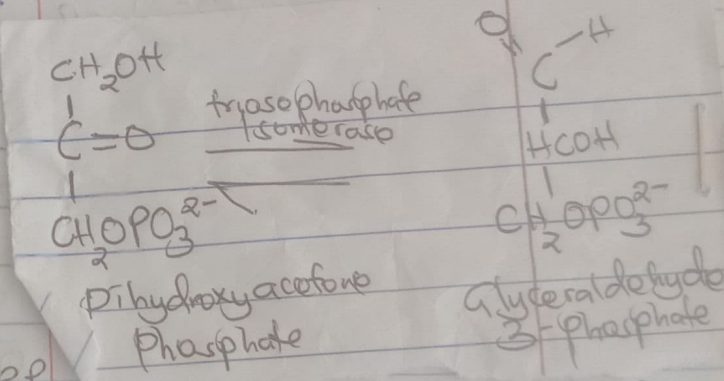 CH2OH
C=O
CH2OPO3 2-
Dihydroxyacetone
Phosphate
tryosophasphate
Isomerase
O
C-H
HCOH
CH2OPO3 2-
Glyceraldehyde
3-Phosphate